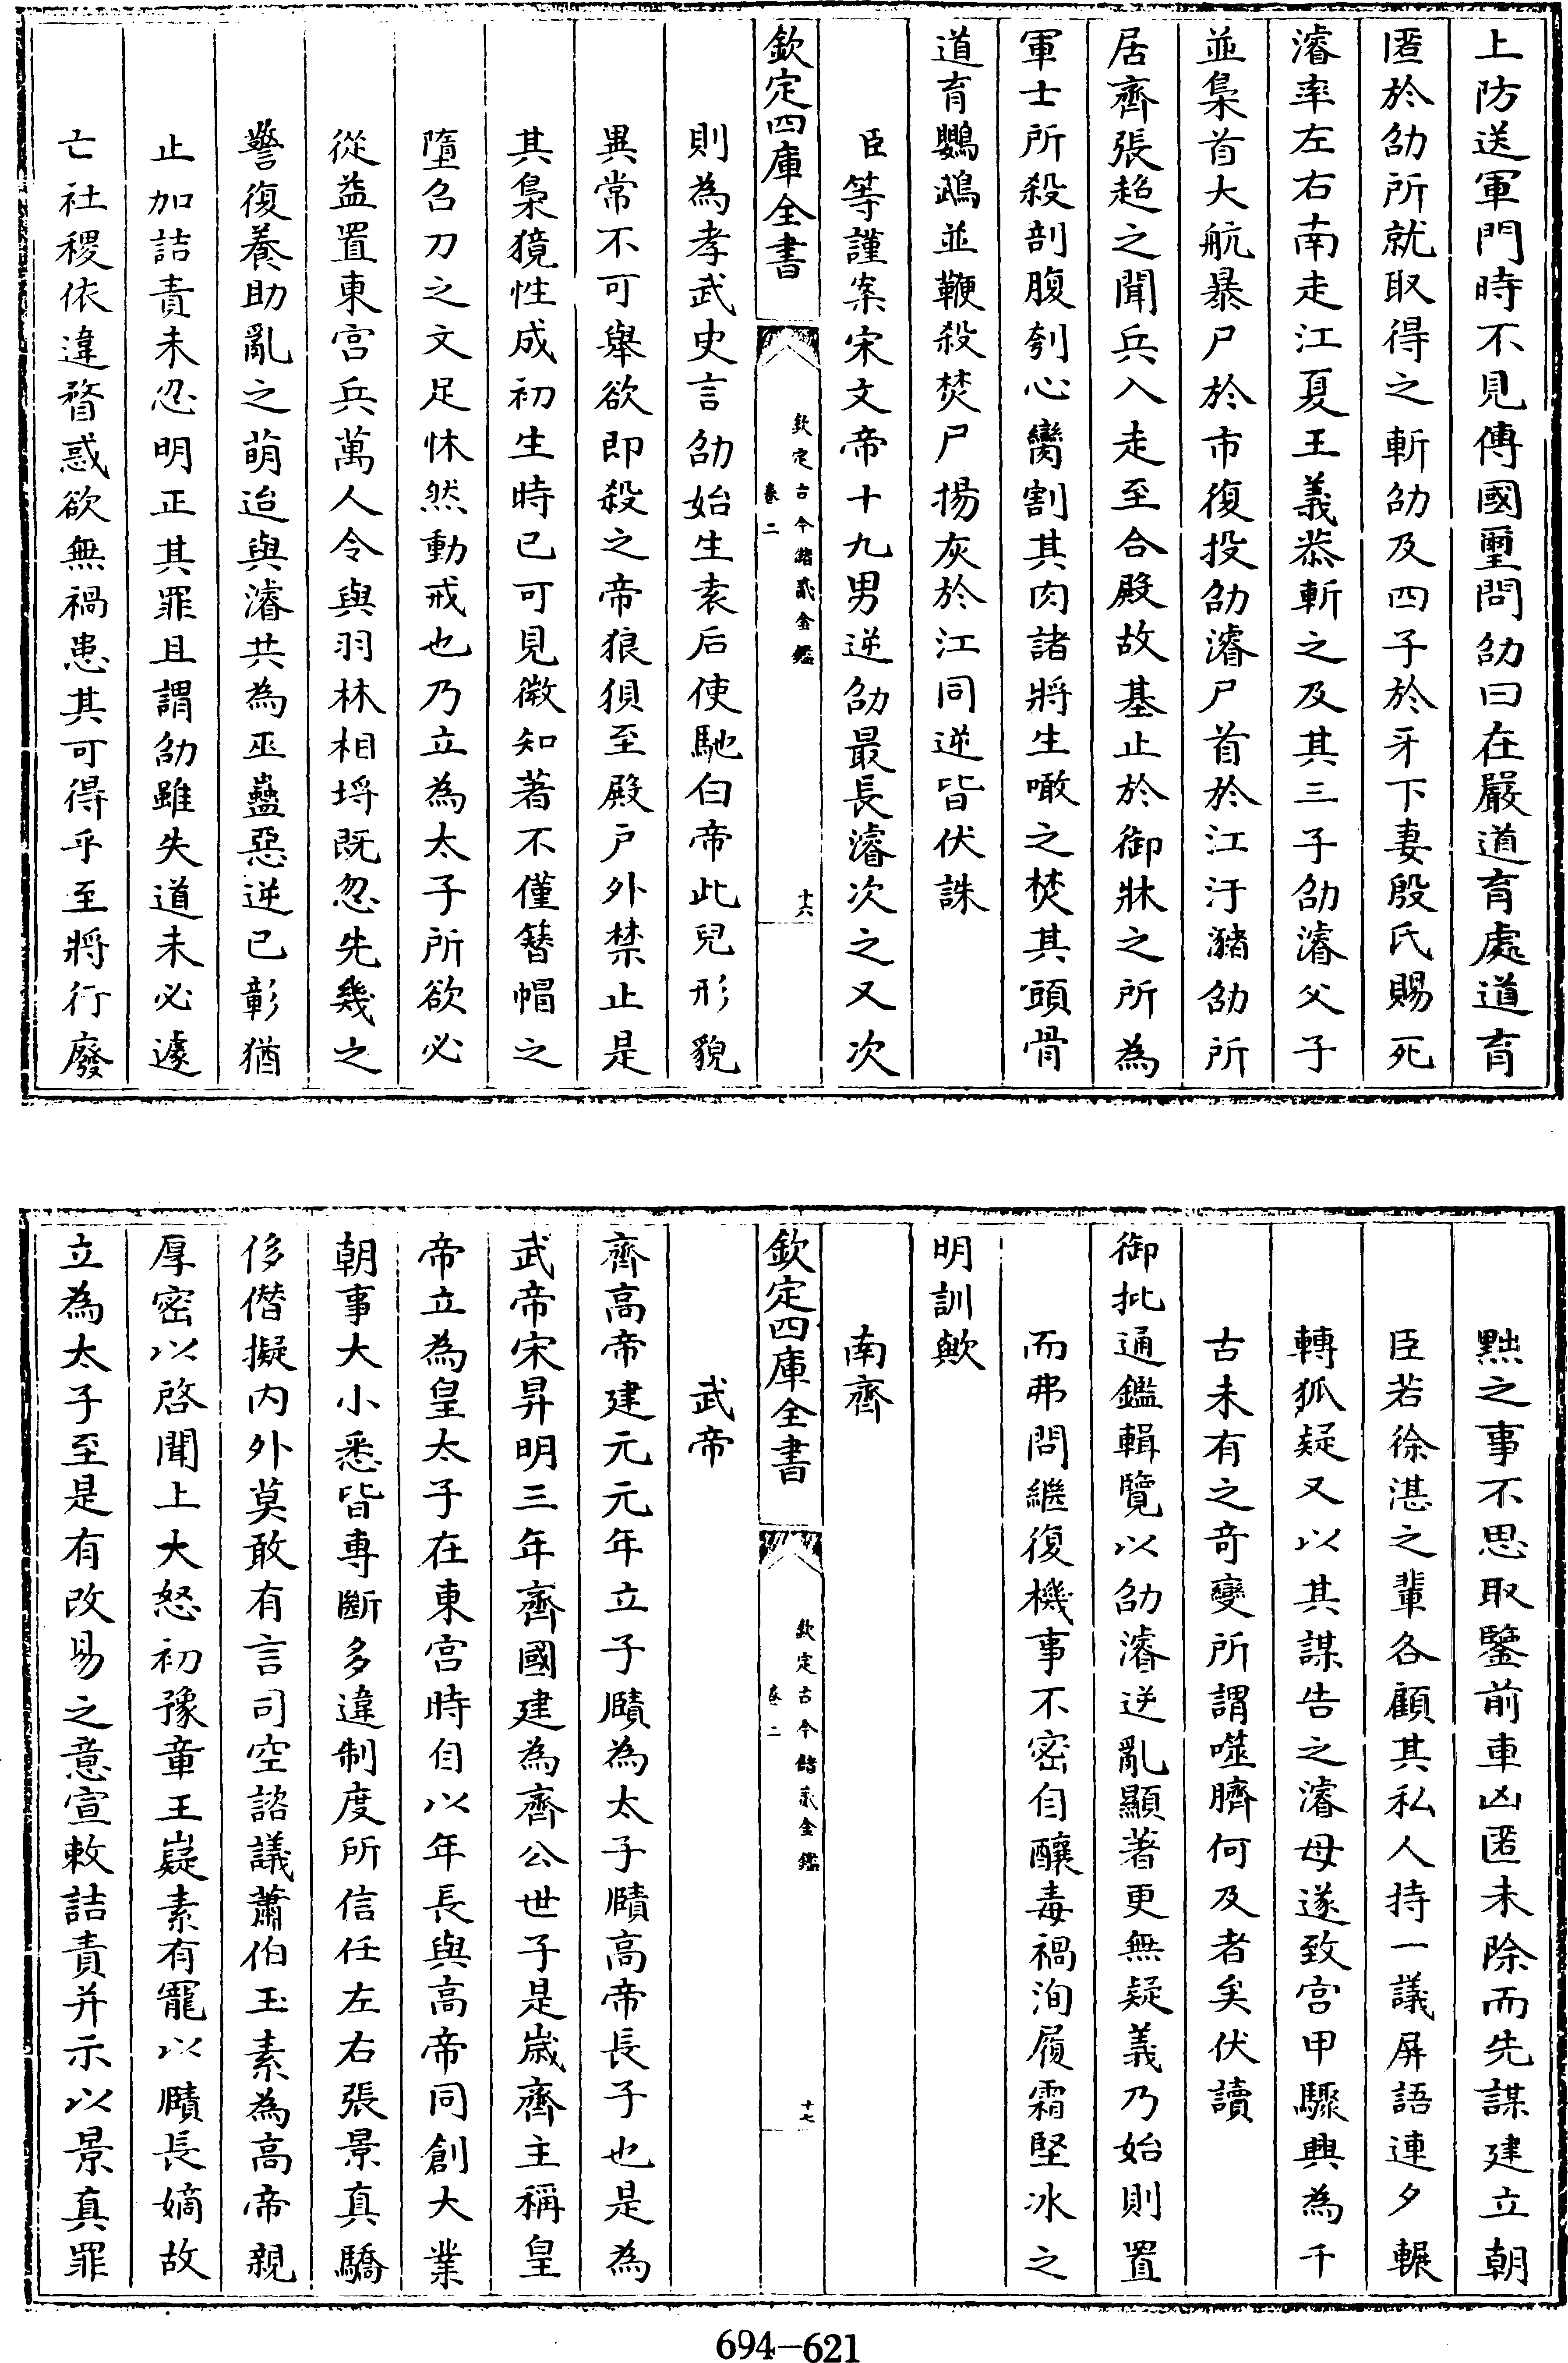 上防送軍門時不見傳國璽問劭曰在嚴道育處道育
匿於劭所就取得之斬劭及四子於牙下妻殷氏賜死
濬率左右南走江夏王義恭斬之及其三子劭濬父子
並梟首大航暴尸於市復投劭濬尸首於江汙瀦劭所
居齋張超之聞兵入走至合殿故基止於御牀之所為
軍士所殺剖腹刳心臠割其肉諸將生噉之焚其頭骨
道育鸚鵡並鞭殺焚尸揚灰於江同逆皆伏誅
臣等謹案宋文帝十九男逆劭最長濬次之又次
欽定四庫全書
欽定古今儲貳金鑑
卷二
十六
則為孝武史言劭始生袁后使馳白帝此兒形貌
異常不可舉欲即殺之帝狼狽至殿戶外禁止是
其梟獍性成初生時已可見微知著不僅簪帽之
墮名刀之文足怵然動戒也乃立為太子所欲必
從益置東宮兵萬人令與羽林相埒既忽先幾之
警復養助亂之萌迨與濬共為巫蠱惡逆已彰猶
止加詰責未忍明正其罪且謂劭雖失道未必遽
亡社稷依違瞀惑欲無禍患其可得乎至將行廢
黜之事不思取鑒前車凶匿未除而先謀建立朝
臣若徐湛之輩各顧其私人持一議屏語連夕輾
轉狐疑又以其謀告之濬母遂致宮甲驟興為千
古未有之奇變所謂噬臍何及者矣伏讀
御批通鑑輯覽以劭濬逆亂顯著更無疑義乃始則置
而弗問繼復機事不密自釀毒禍洵履霜堅冰之
明訓歟
南齊
欽定四庫全書
欽定古今儲貳金鑑
卷二
十七
武帝
齊高帝建元元年立子賾為太子賾高帝長子也是為
武帝宋昇明三年齊國建為齊公世子是歲齊主稱皇
帝立為皇太子在東宮時自以年長與高帝同創大業
朝事大小悉皆專斷多違制度所信任左右張景真驕
侈僭擬內外莫敢有言司空諮議蕭伯玉素為高帝親
厚密以啓聞上大怒初豫章王嶷素有寵以賾長嫡故
立為太子至是有改易之意宣敕詰責并示以景真罪
694-621